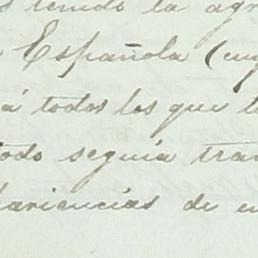 tenido la agr
Española (cuy
á todos los que t
todo seguia tran
pariencias de